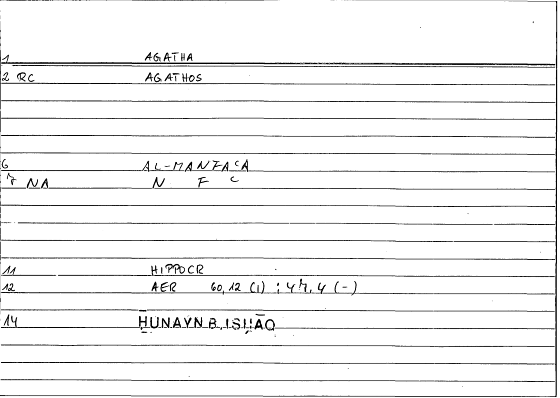 1 AGATHA
2 RC AGATHOS
6 AL-MANFAᶜA
7 NA N F ᶜ
11 HIPPOCR
12 AER 60,12 (1) : 47,4 (-)
14 ḤUNAYN B. ISḤĀQ